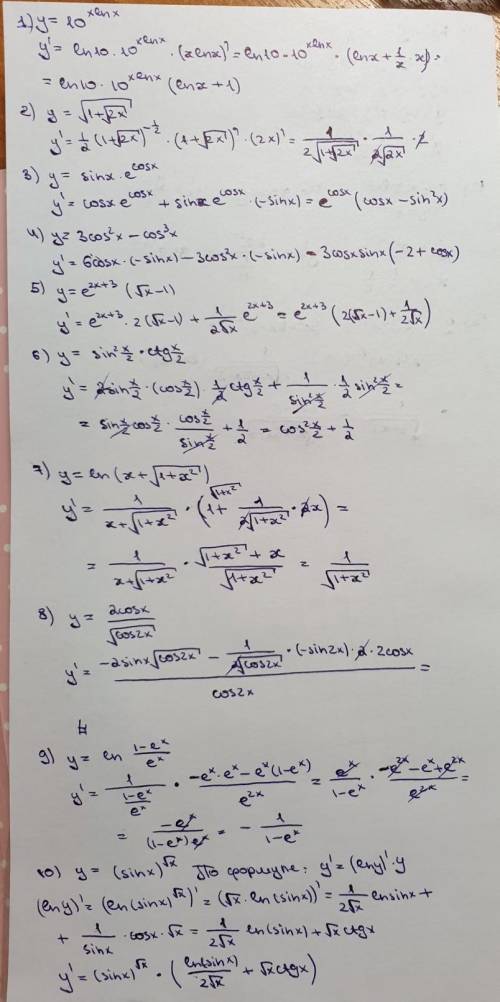 1) y = 10^{xlnx}
y' = ln10 · 10^{xlnx} · (xlnx)' = ln10 · 10^{xlnx} · (lnx + 1/x · x) =
= ln10 · 10^{xlnx} (lnx + 1)
2) y = √(1+√(2x))
y' = 1/2 (1+√(2x))^{-1/2} · (1+√(2x))' · (2x)' = 1/(2√(1+√(2x))) · 1/(2√(2x)) · 2
3) y = sinx · e^{cosx}
y' = cosx e^{cosx} + sinx e^{cosx} · (-sinx) = e^{cosx} (cosx - sin²x)
4) y = 3cos²x - cos³x
y' = 6cosx · (-sinx) - 3cos²x · (-sinx) = 3cosx sinx (-2 + cosx)
5) y = e^{2x+3} (√x - 1)
y' = e^{2x+3} · 2(√x - 1) + 1/(2√x) e^{2x+3} = e^{2x+3} (2(√x - 1) + 1/(2√x))
6) y = sin² x/2 · ctg x/2
y' = 2sin x/2 · (cos x/2) 1/2 ctg x/2 + 1/(sin² x/2) · 1/2 sin² x/2 =
= sin x/2 cos x/2 · (cos x/2)/(sin x/2) + 1/2 = cos² x/2 + 1/2
7) y = ln(x + √(1+x²))
y' = 1/(x+√(1+x²)) · (1^{√(1+x²)} + 1/(2√(1+x²)) · 2x) =
= 1/(x+√(1+x²)) · (√(1+x²) + x)/√(1+x²) = 1/√(1+x²)
8) y = 2cosx/√(cos2x)
y' = (-2sinx√(cos2x) - 1/(2√(cos2x)) · (-sin2x) · 2 · 2cosx)/cos2x =
9) y = ln (1-e^x)/e^x
y' = 1/((1-e^x)/e^x) · (-e^x · e^x - e^x(1-e^x))/e^{2x} = e^x/(1-e^x) · (-e^{2x} - e^x + e^{2x})/e^{2x} =
= -e^x/((1-e^x)e^x) = - 1/(1-e^x)
10) y = (sinx)^{√x} По формуле: y' = (lny)' · y
(lny)' = (ln(sinx)^{√x})' = (√x · ln(sinx))' = 1/(2√x) lnsinx +
+ 1/sinx · cosx · √x = 1/(2√x) ln(sinx) + √x ctgx
y' = (sinx)^{√x} · (ln(sinx)/(2√x) + √x ctgx)